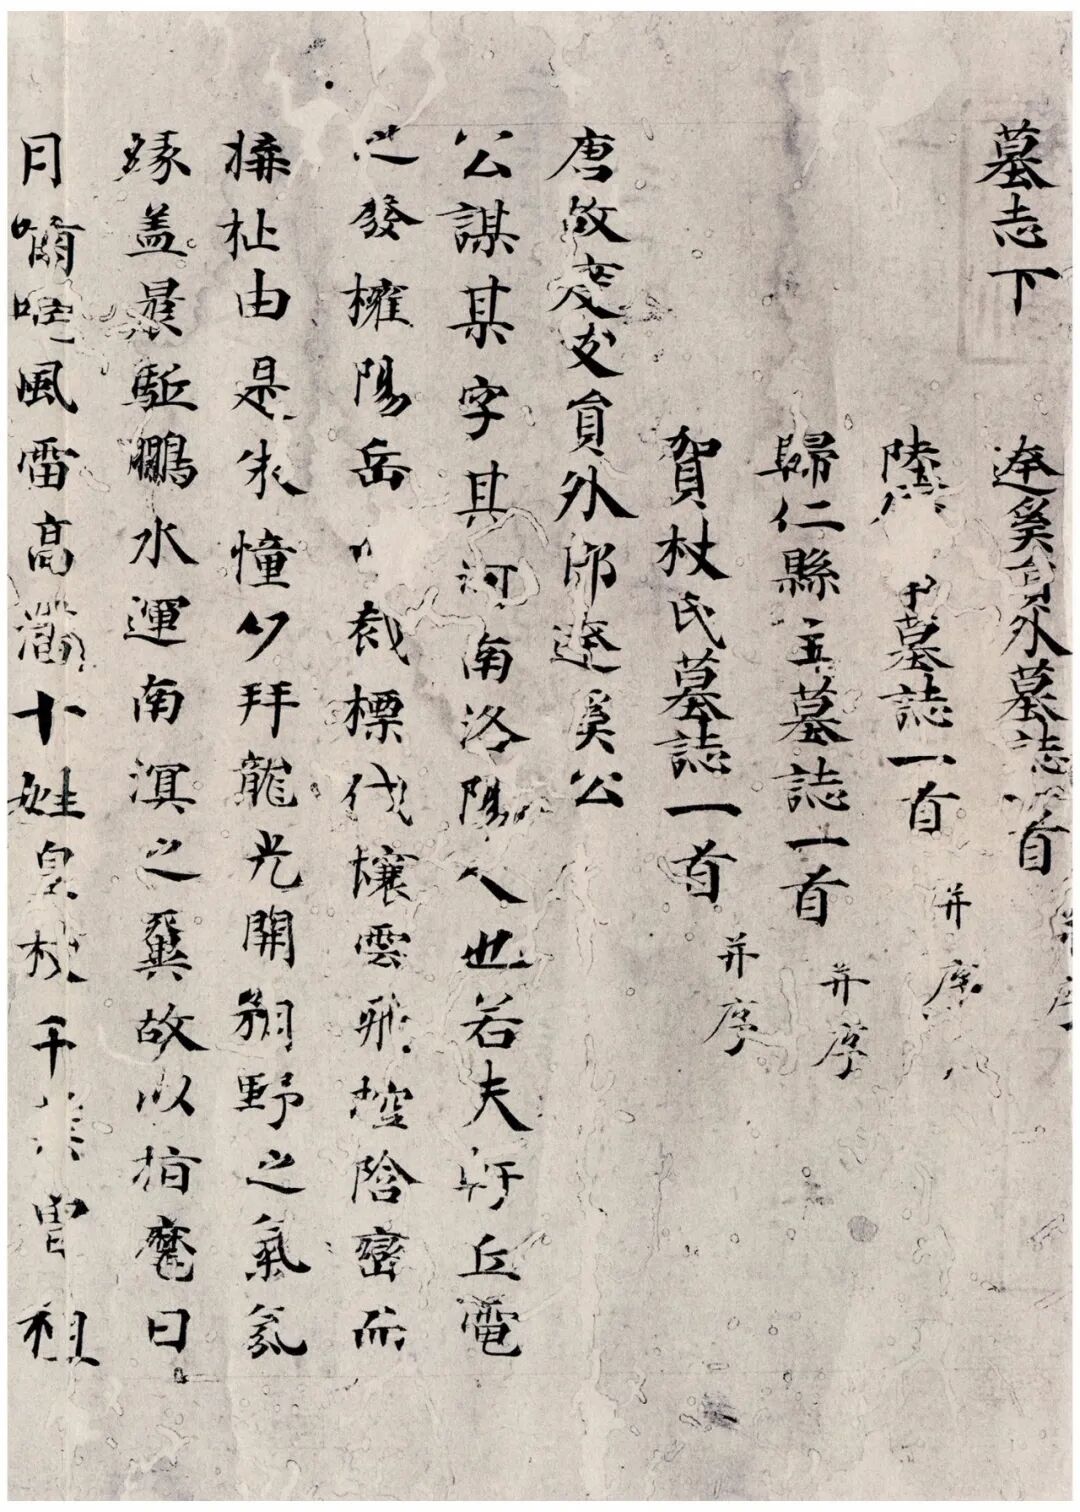 墓志下
達奚員外墓誌一首并序
陸墓誌一首并序
歸仁縣主墓誌一首并序
賀杖氏墓誌一首并序
唐故度支員外郎達奚公
公謀某字其河南洛陽人也若夫軒丘電
之發擁陽岳裁標代壤雲飛控陰巒而
構址由是朱憧夕拜龍光開朔野之氣氛
緑盖晨駈鵬水運南溟之翼故以指麾日
月嘯咤風雷高十姓皇枝千葉曾祖